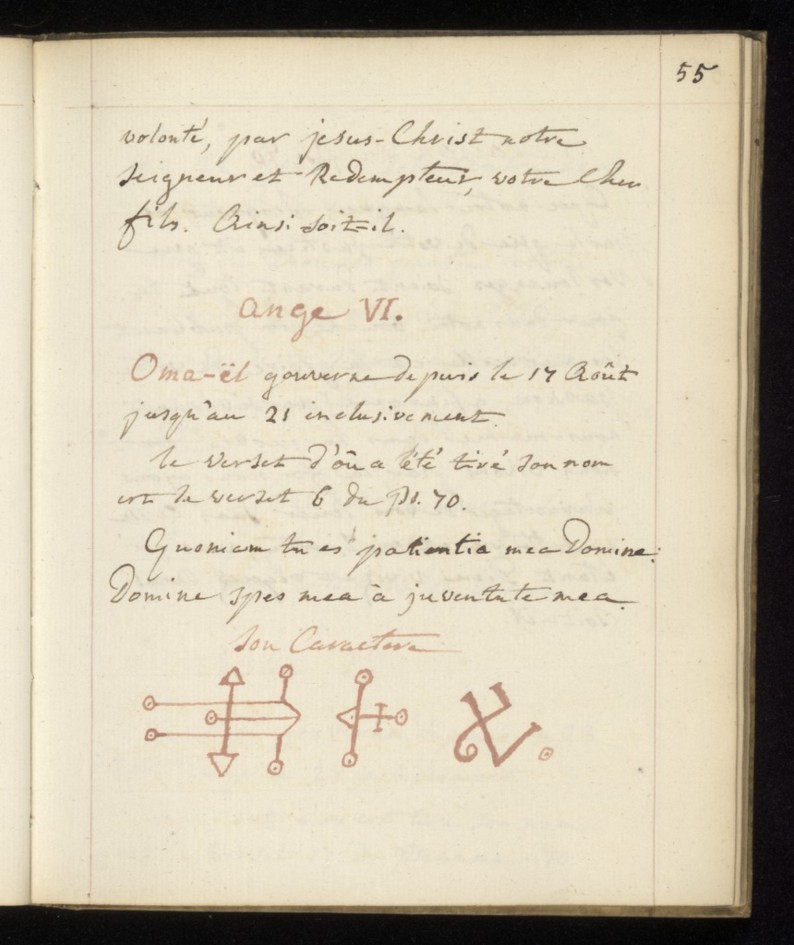 55
volonté, par jesus-Christ notre
Seigneur et Redempteur, votre Cher
fils. Ainsi soit-il.
Ange VI.
Oma-ël gouverne depuis le 17 Août
jusqu'au 21 inclusivement.
le verset d'où a été tiré son nom
est le verset 6 du ps. 70.
Quoniam tu es patientia mea Domine:
Domine spes mea à juventute mea.
Son Caractere